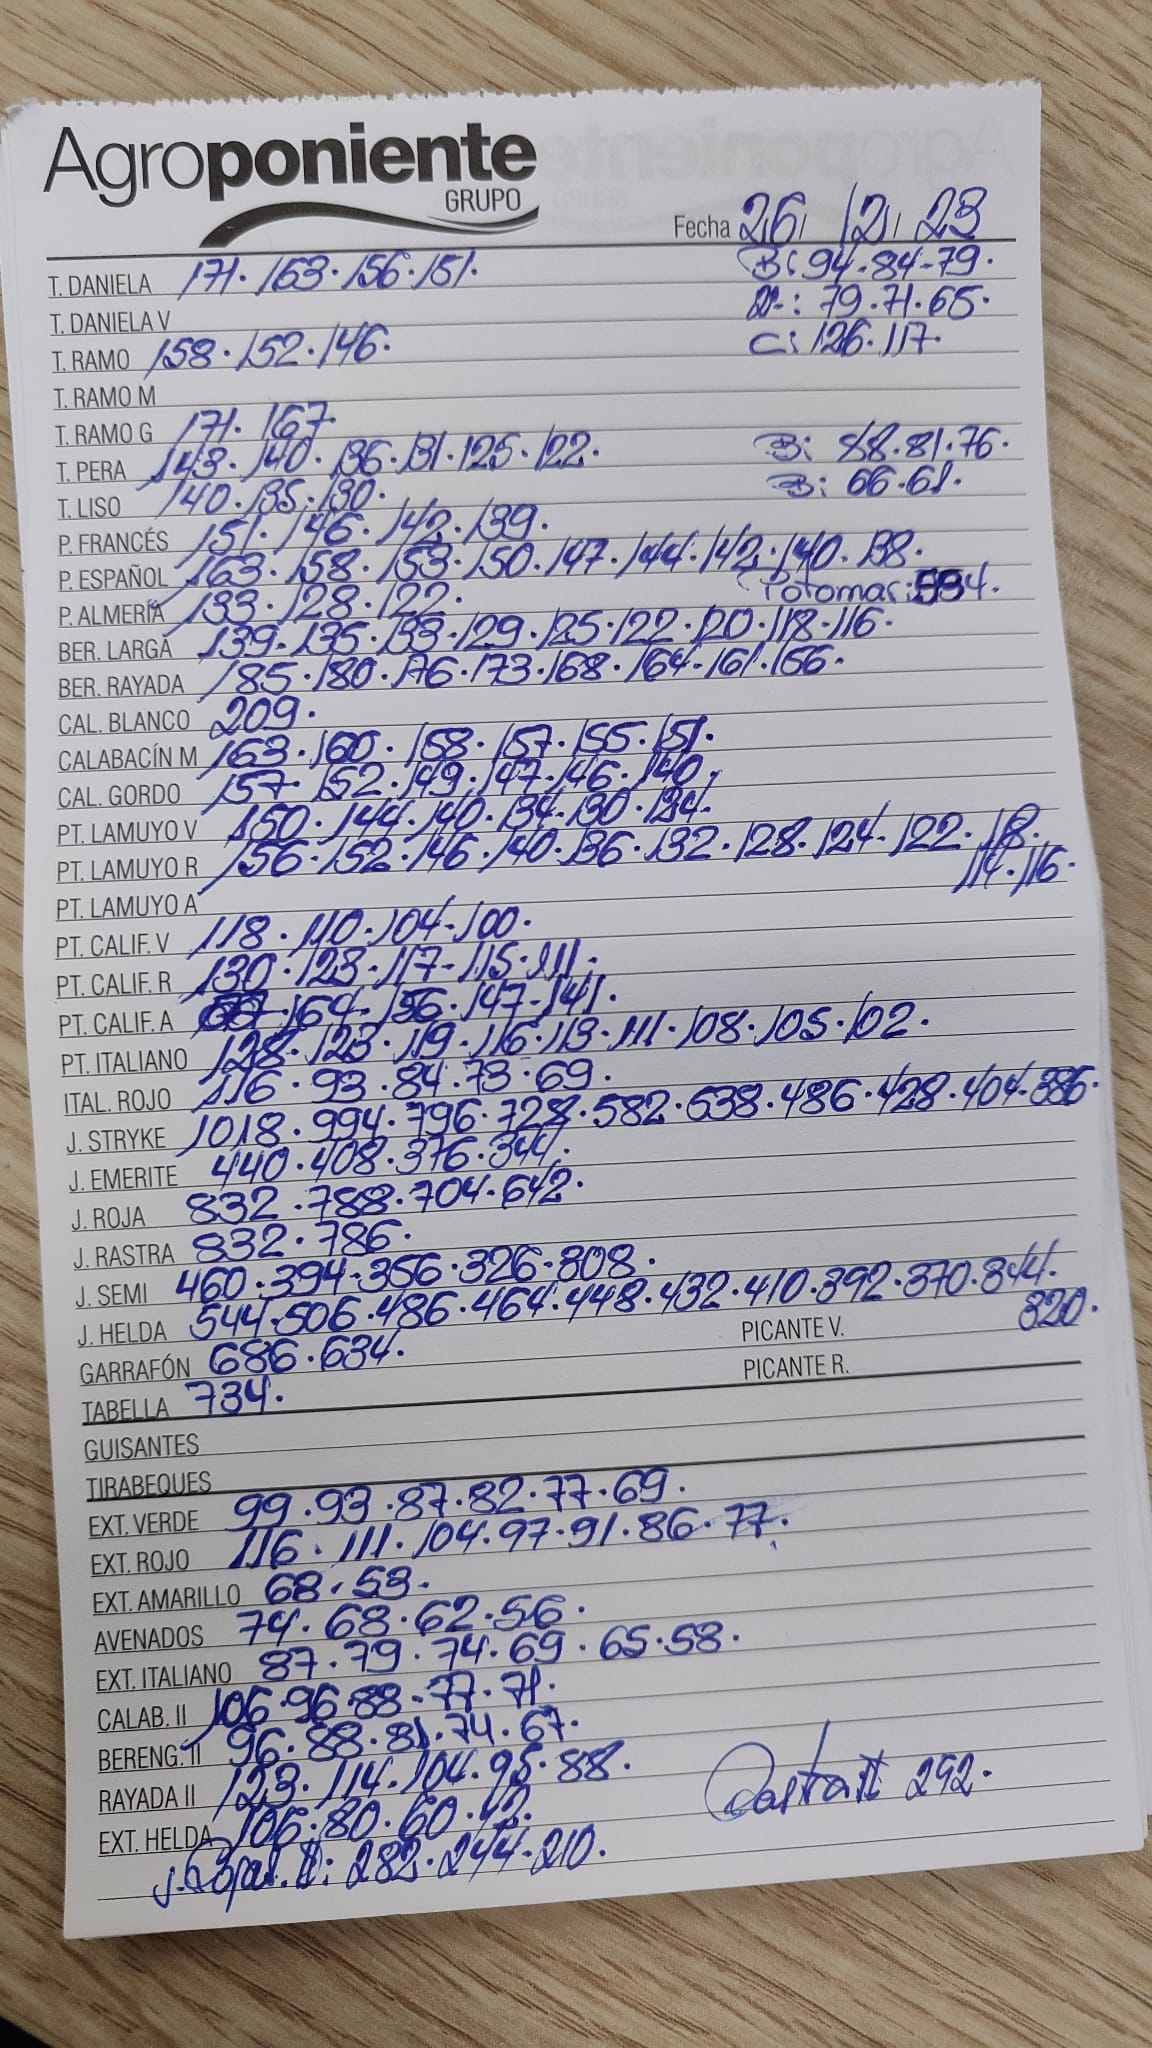 Agroponiente
GRUPO
Fecha 26/12/23
T. DANIELA 171. 163. 156. 151. B: 94-84-79.
T. DANIELA V : 79.71.65.
T. RAMO 158.152.146. C: 126.117.
T. RAMO M
T. RAMO G 171. 167.
T. PERA 143. 140. 136. 131. 125. 122. B: 88.81.76.
T. LISO 140. 135. 130. B: 66.61.
P. FRANCÉS 151. 146. 142. 139.
P. ESPAÑOL 163. 158. 153. 150. 147. 144. 142. 140. 138.
P. ALMERÍA 133. 128. 122.
BER. LARGA 139. 135. 133. 129. 125. 122. 120. 118. 116.
BER. RAYADA 185. 180. 176. 173. 168. 164. 161. 156.
CAL. BLANCO 209.
CALABACÍN M 163. 160. 158. 157. 155. 151.
CAL. GORDO 157. 152. 149. 147. 146. 140.
PT. LAMUYO V 150. 144. 140. 134. 130. 124.
PT. LAMUYO R 156. 152. 146. 140. 136. 132. 128. 124. 122. 118.
114. 116.
PT. LAMUYO A
PT. CALIF. V 118. 110. 104. 100.
PT. CALIF. R 130. 123. 117. 115. 111.
PT. CALIF. A 164. 156. 147. 141.
PT. ITALIANO 128. 123. 119. 116. 113. 111. 108. 105. 102.
ITAL. ROJO 116. 93. 84. 73. 69.
J. STRYKE 1018. 994. 796. 728. 582. 538. 486. 428. 404. 386.
J. EMERITE 440. 408. 376. 344.
J. ROJA 832. 788. 704. 642.
J. RASTRA 832. 786.
J. SEMI 460. 394. 356. 326. 308.
J. HELDA 544. 506. 486. 464. 448. 432. 410. 392. 370. 344.
320.
GARRAFÓN 686. 634. PICANTE V.
TABELLA 734. PICANTE R.
GUISANTES
TIRABEQUES
EXT. VERDE 99. 93. 87. 82. 77. 69.
EXT. ROJO 116. 111. 104. 97. 91. 86. 77.
EXT. AMARILLO 68. 53.
AVENADOS 74. 68. 62. 56.
EXT. ITALIANO 87. 79. 74. 69. 65. 58.
CALAB. II 106. 96. 88. 77. 71.
BERENG. II 96. 88. 81. 74. 67.
RAYADA II 123. 114. 104. 95. 88.
EXT. HELDA 106. 80. 60. 42. Rastra II 292.
II: 282. 244. 210.